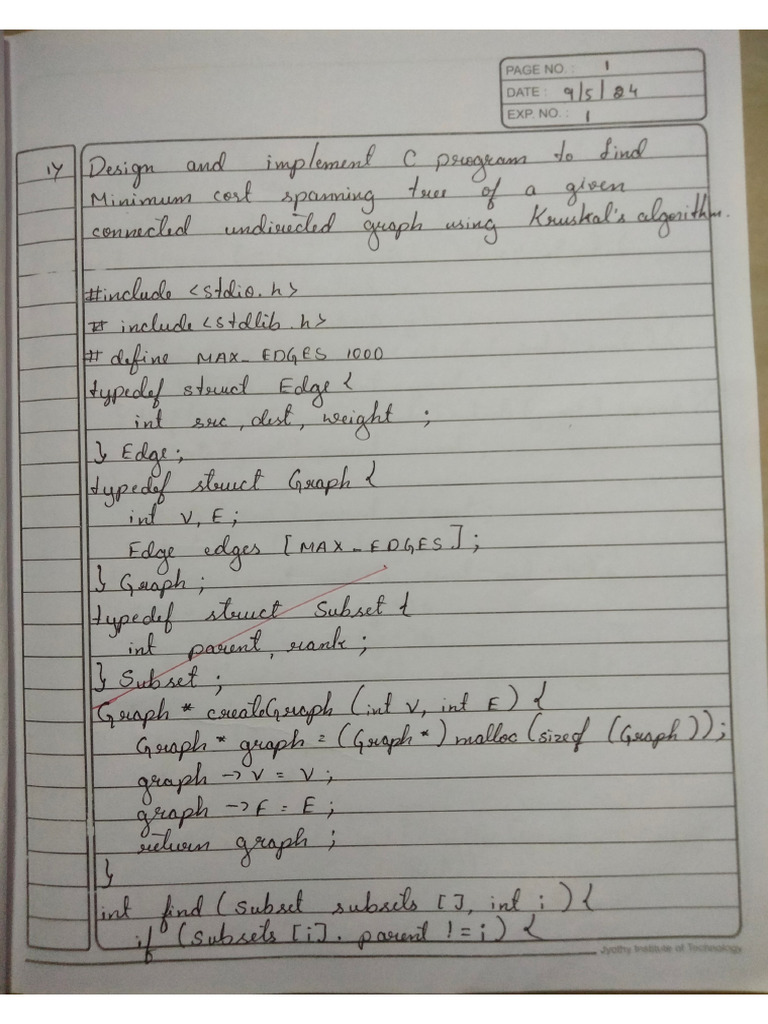 PAGE NO. : 1
DATE : 9/5/24
EXP. NO. : 1
1) Design and implement C program to find
Minimum cost spanning tree of a given
connected undirected graph using Kruskal's algorithm.
#include <stdio.h>
# include <stdlib.h>
# define MAX_EDGES 1000
typedef struct Edge {
int src, dest, weight ;
} Edge;
typedef struct Graph {
int V, E;
Edge edges [MAX_EDGES];
} Graph ;
typedef struct Subset {
int parent, rank ;
} Subset ;
Graph * createGraph (int V, int E) {
Graph * graph = (Graph *) malloc (sizeof (Graph ));
graph -> V = V ;
graph -> E = E ;
return graph ;
}
int find (Subset subsets [], int i) {
if (subsets [i]. parent != i) {
Jyothy Institute of Technology